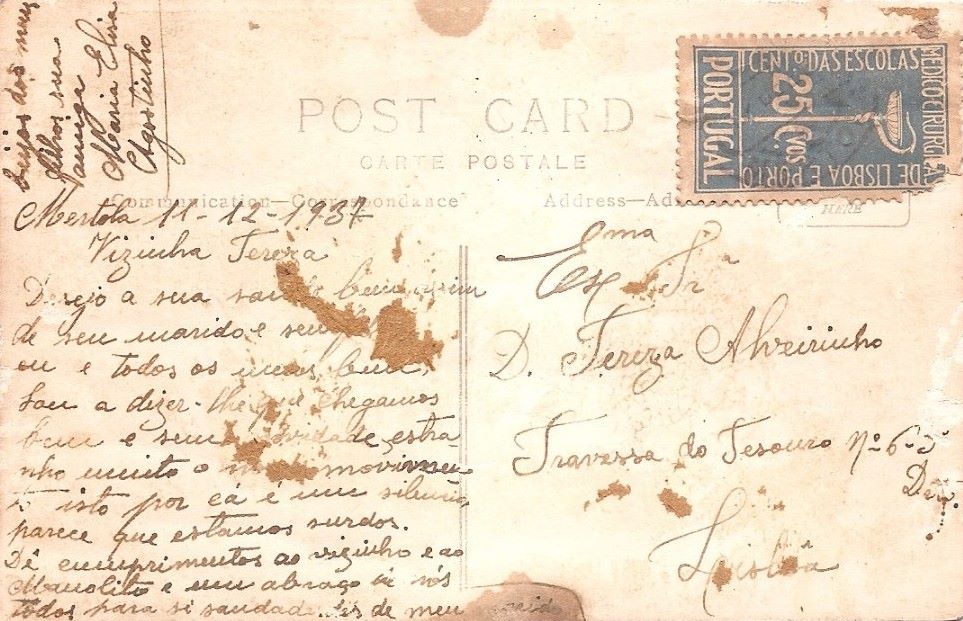 beijos dos meus
filhos sua
amiga
Maria Elisa
Agostinho
POST CARD
CARTE POSTALE
Communication—Correspondance
Address—Ad
HERE
I CENTO. DAS ESCOLAS
MEDICO CIRURGICAS
DE LISBOA E PORTO
25 CVOS
PORTUGAL
Mertola 11-12-1937
Vizinha Tereza
Desejo a sua bem assim
de seu marido e
eu e todos os meus bem,
Sou a dizer-lhe que chegamos
bem e sem novidade, estra
nho muito o movimen
to isto por cá é um silencio
parece que estamos surdos.
Dê cumprimentos ao vizinho e ao
Manolito e um abraço de nós
todos para si saudades de meu marido
Exma Sra
D. Tereza Alveirinho
Travessa do Tesouro No 6-3
Lisboa